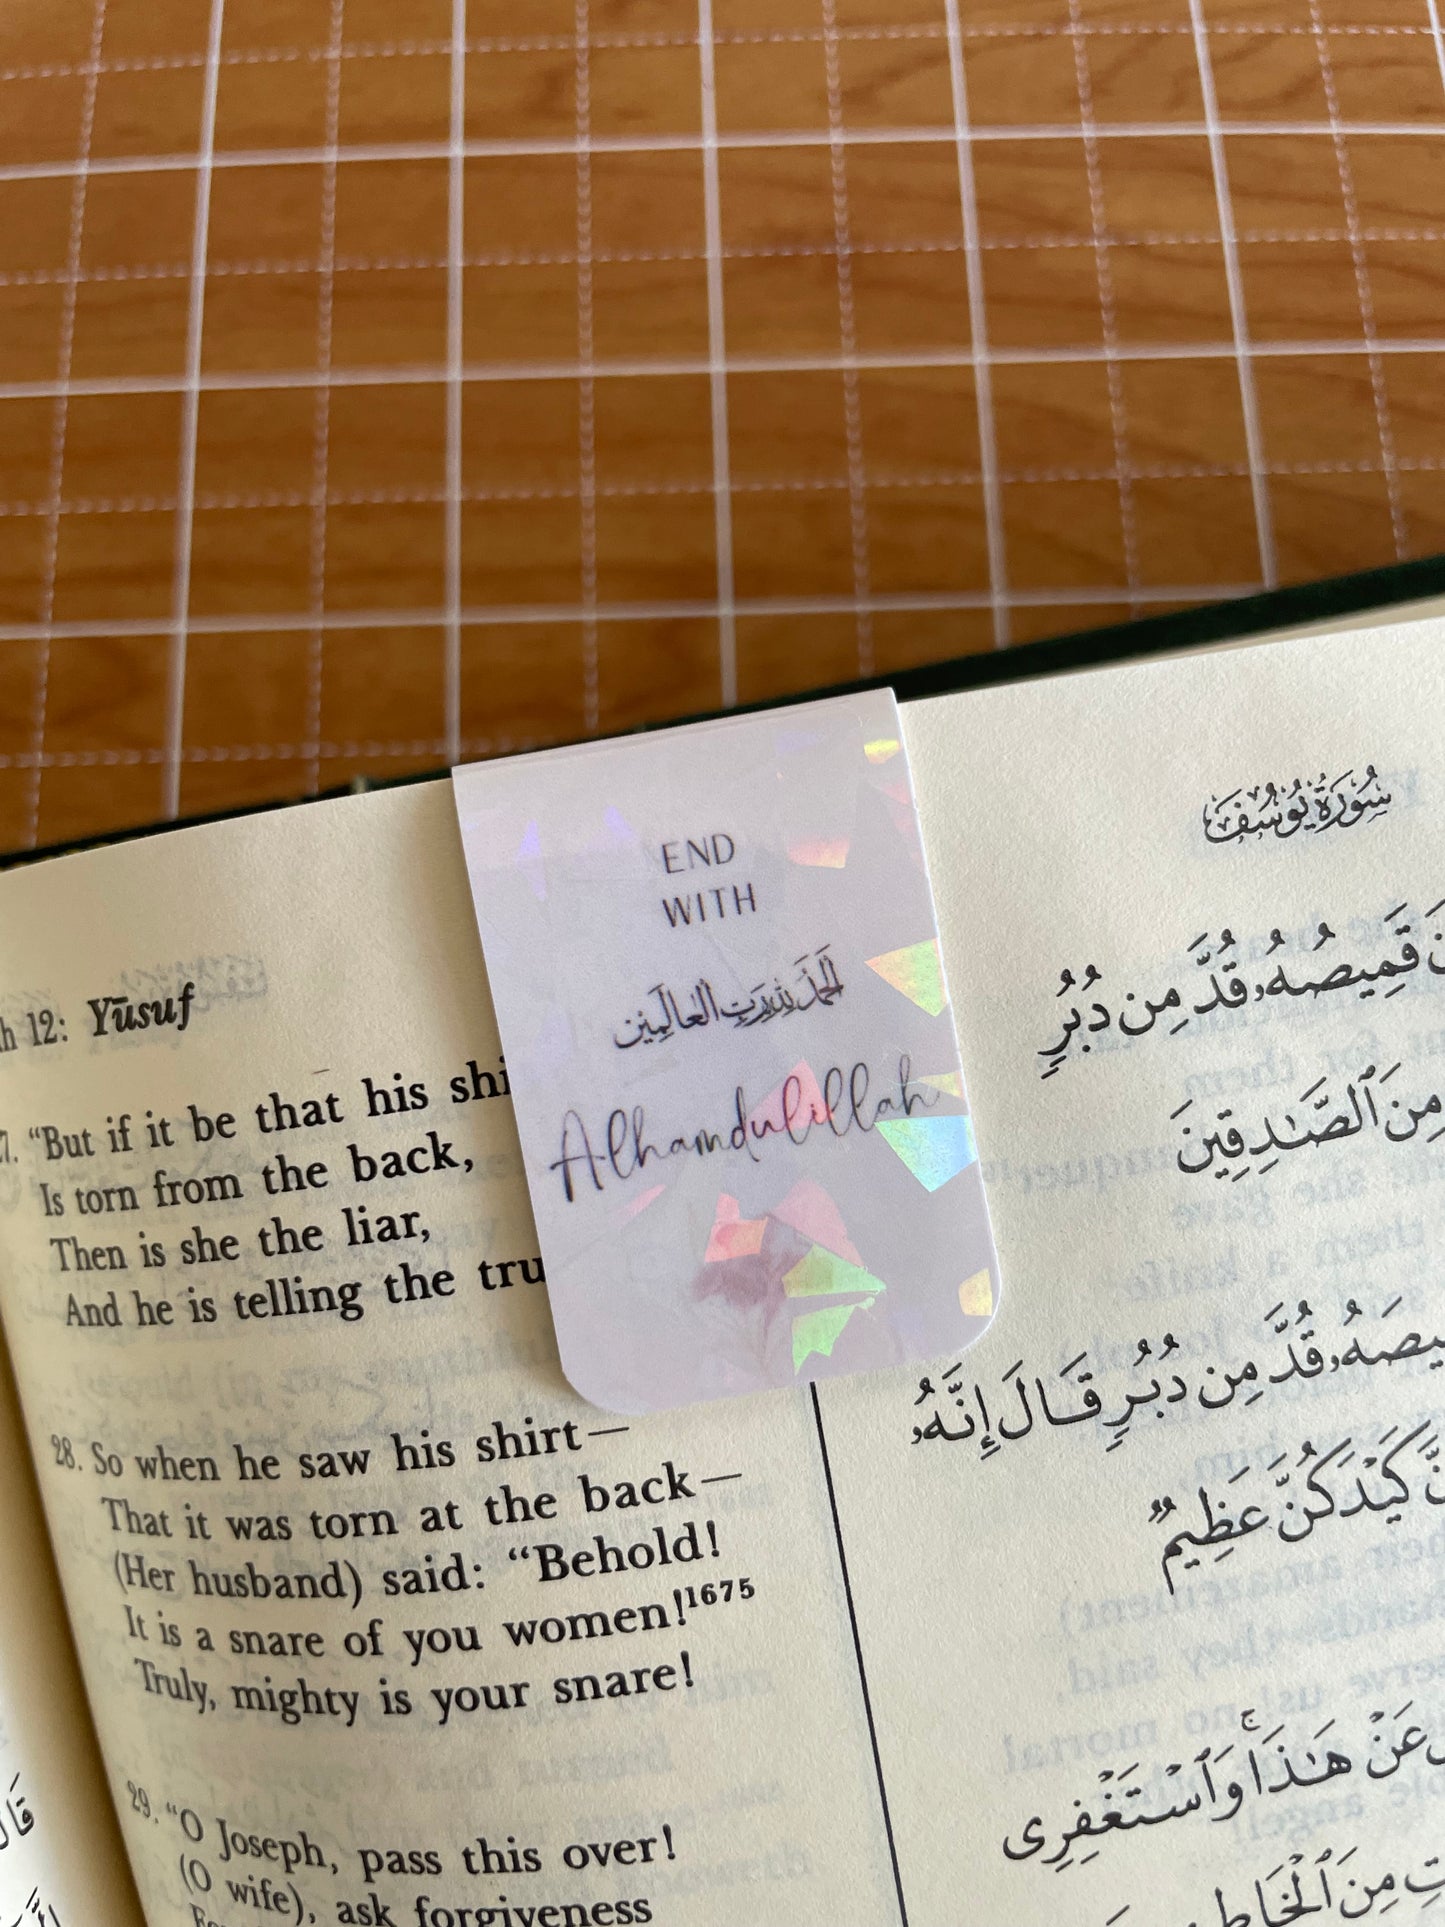 END
WITH
الحمد لله رب العالمين
Alhamdulillah
12: Yūsuf
"But if it be that his
Is torn from the back,
Then is she the liar,
And he is telling the
28. So when he saw his shirt—
That it was torn at the back—
(Her husband) said: "Behold!
It is a snare of you women!1675
Truly, mighty is your snare!
29. "O Joseph, pass this over!
(O wife), ask forgiveness
سُورَةُ يُوسُفَ
قَمِيصُهُۥ قُدَّ مِن دُبُرٍ
مِنَ ٱلصَّٰدِقِينَ
قُدَّ مِن دُبُرٍ قَالَ إِنَّهُۥ
كَيْدَكُنَّ عَظِيمٌ
عَنْ هَٰذَا ۚ وَٱسْتَغْفِرِى
مِنَ